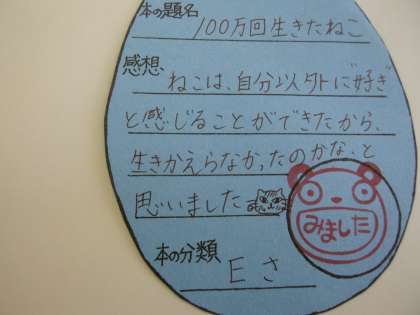 本の題名
100万回生きたねこ
感想
ねこは、自分以外に"好き"
と感じることができたから、
生きかえらなかったのかな、と
思いました
みました
本の分類
Eさ